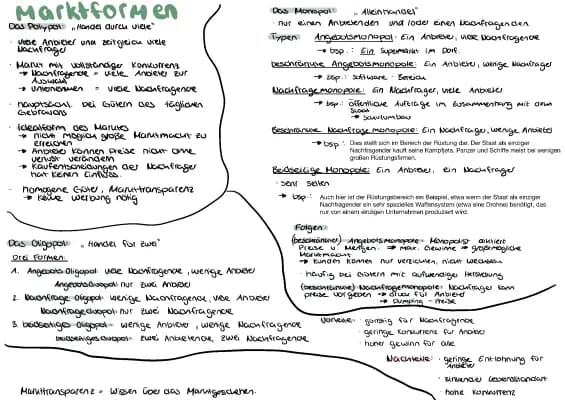 Marktformen
Das Polypol: „Handel durch viele"
· viele Anbieter und zeitgleich viele
Nachfrager
· Markt mit vollständiger Konkurrenz
→ Nachfragende = viele Anbieter zur
Auswahl
→ Unternehmen = viele Nachfragende
· hauptsächl. bei Gütern des täglichen
Gebrauchs
· Idealform des Marktes
→ nicht möglich große Marktmacht zu
erreichen
→ Anbieter können Preise nicht ohne
Verlust verändern
→ Kaufentscheidungen der Nachfrager
hat keinen Einfluss.
· homogene Güter, Markttransparenz
→ keine Werbung nötig
Das Oligopol: „Handel für zwei"
Drei Formen:
1. Angebots-Oligopol: viele Nachfragende, wenige Anbieter
Angebotsduopol: nur zwei Anbieter
2. Nachfrage-Oligopol: wenige Nachfragende, viele Anbieter
Nachfrageduopol: nur zwei Nachfragende
3. beidseitiges Oligopol: wenige Anbieter, wenige Nachfragende
beidseitiges Duopol: zwei Anbietende, zwei Nachfragende
Markttransparenz = Wissen über das Marktgeschehen.
Das Monopol: „Alleinhandel"
· nur einen Anbietenden und/oder einen Nachfragenden
Typen: Angebotsmonopol: Ein Anbieter, viele Nachfragende
→ bsp.: Ein Supermarkt im Dorf.
beschränkte Angebotsmonopole: Ein Anbieter, wenige Nachfrager
→ bsp.: Software-Bereich
Nachfragemonopole: Ein Nachfrager, viele Anbieter
→ bsp.: öffentliche Aufträge im Zusammenhang mit dem
Staat
→
Beschränkte Nachfragemonopole: Ein Nachfrager, wenige Anbieter
→ bsp.: Dies stellt sich im Bereich der Rüstung dar. Der Staat als einziger
Nachfragender kauft seine Kampfjets, Panzer und Schiffe meist bei wenigen
großen Rüstungsfirmen.
Beidseitige Monopole: Ein Anbieter, ein Nachfrager
· sehr selten
→ bsp.: Auch hier ist der Rüstungsbereich ein Beispiel, etwa wenn der Staat als einziger
Nachfragender ein sehr spezielles Waffensystem (etwa eine Drohne) benötigt, das
nur von einem einzigen Unternehmen produziert wird.
Folgen:
(beschränkter) Angebotsmonopole: Monopolist diktiert
Preise u. Mengen. → max. Gewinne → größtmögliche
Marktmacht
→ Kunden können nur verzichten, nicht wechseln
· häufig bei Gütern mit aufwendiger Herstellung
(beschränkter) Nachfragemonopole: Nachfrager kann
Preise vorgeben → Druck für Anbieter
→ Dumping-Preise
Vorteile: · günstig für Nachfragende
· geringe Konkurrenz für Anbieter
· hoher Gewinn für alle
Nachteile: · geringe Entlohnung für
Anbieter
· sinkender Lebensstandart
· hohe Konkurrenz